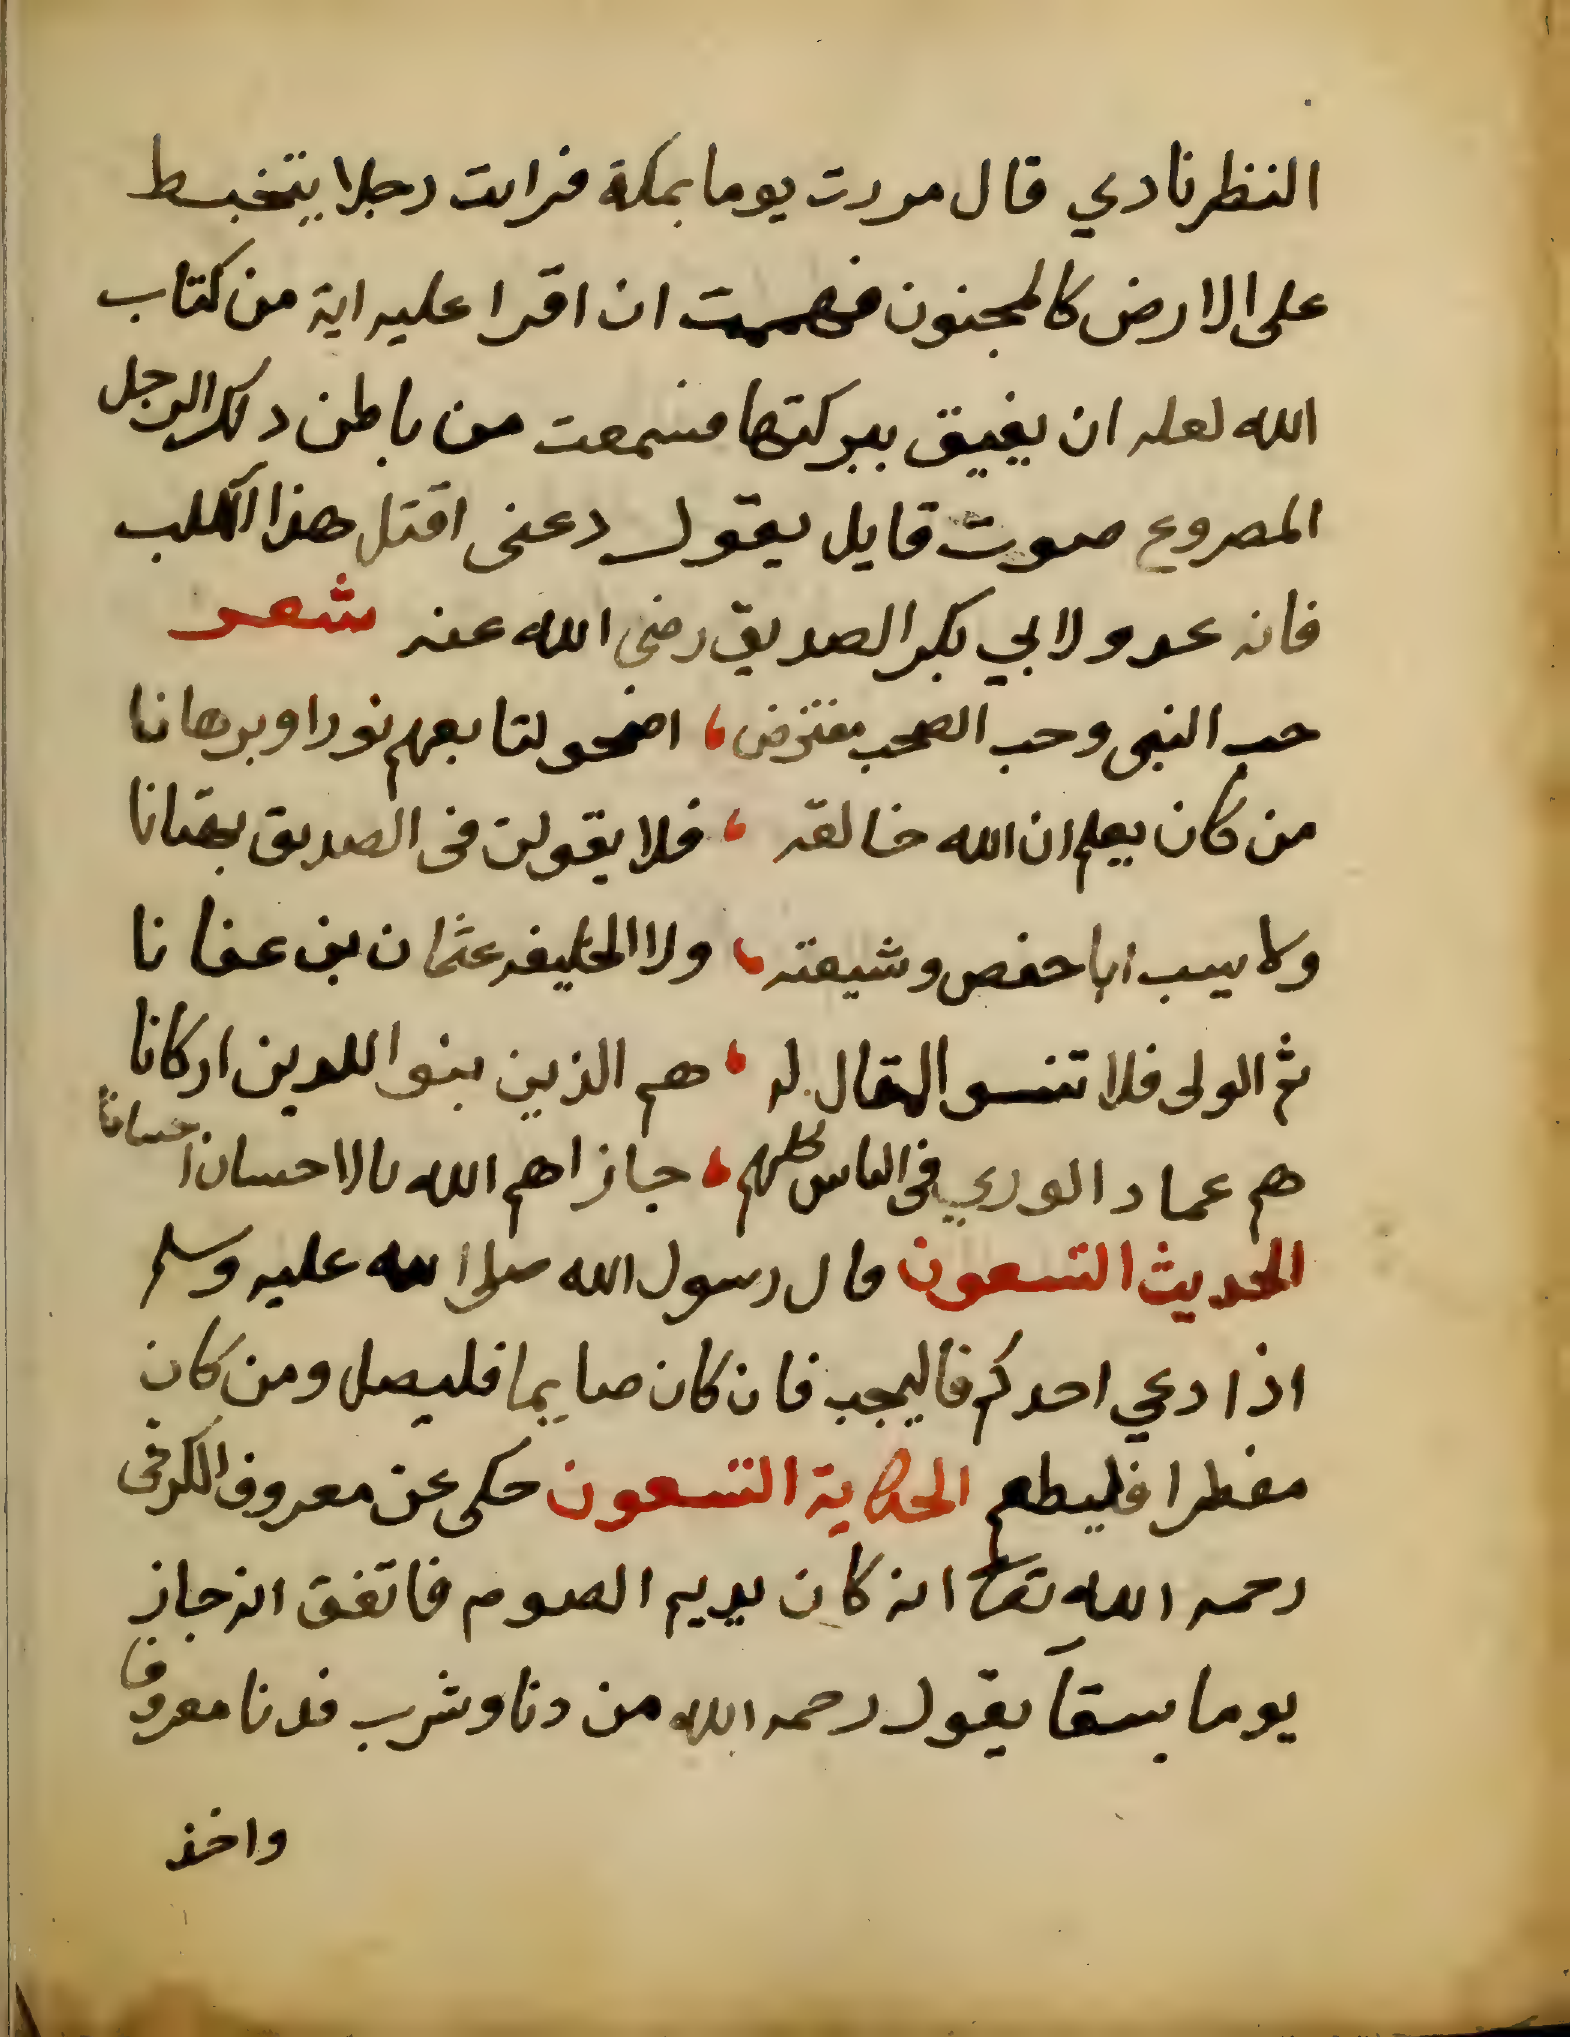 النظرنادي قال مررت يوما بمكة فرايت رجلا يتخبط
على الارض كالمجنون فهممت ان اقرا عليه اية من كتاب
الله لعله ان يفيق ببركتها فسمعت من باطن دلك الرجل
المصروع صوت قايل يقول دعنى اقتل هذا الكلب
فانه عدو لابي بكر الصديق رضي الله عنه شعر
حب النبى وحب الصحب مفترض ، اضحو لتابعهم نورا وبرهانا
من كان يعلم ان الله خالقه ، فلا يقولن فى الصديق بهتانا
ولا يسب ابا حفص وشيعته ، ولا الخليفه عثمان بن عفانا
ثم الولى فلا تنسو المقال له ، هم الذين بنوا للدين اركانا
هم عماد الوري فى الناس كلهم ، جازاهم الله بالاحسان احسانا
الحديث التسعون قال رسول الله صلى الله عليه وسلم
اذا دعي احدكم فاليجب فان كان صايما فليصل ومن كان
مفطرا فليطعم الحكاية التسعون حكى عن معروف الكرخى
رحمه الله تعا انه كان يديم الصوم فاتفق انه جاز
يوما بسقآ يقول رحمه الله من دنا وشرب فدنا معروفا
واخذ